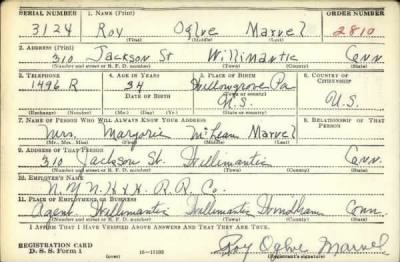 SERIAL NUMBER 1. NAME (Print) ORDER NUMBER
3124 Roy Oglve Marvel 2810
(First) (Middle) (Last)
2. ADDRESS (Print)
310 Jackson St Willimantic Conn.
(Number and street or R. F. D. number) (Town) (County) (State)
3. TELEPHONE 4. AGE IN YEARS 5. PLACE OF BIRTH 6. COUNTRY OF CITIZENSHIP
1496 R 34 Willowgrove Pa
DATE OF BIRTH (Town or county)
U.S. U.S.
(Exchange) (Number) (Mo.) (Day) (Yr.) (State or country)
7. NAME OF PERSON WHO WILL ALWAYS KNOW YOUR ADDRESS 8. RELATIONSHIP OF THAT PERSON
Mrs. Marjorie McLean Marvel
(Mr., Mrs., Miss) (First) (Middle) (Last)
9. ADDRESS OF THAT PERSON
310 Jackson St. Willimantic Conn.
(Number and street or R. F. D. number) (Town) (County) (State)
10. EMPLOYER'S NAME
N.Y.N.H.&H. R.R. Co.
11. PLACE OF EMPLOYMENT OR BUSINESS
Agent Willimantic Willimantic Windham Conn
(Number and street or R. F. D. number) (Town) (County) (State)
I AFFIRM THAT I HAVE VERIFIED ABOVE ANSWERS AND THAT THEY ARE TRUE.
REGISTRATION CARD
D. S. S. Form 1 16—17105 Roy Oglve Marvel
(Registrant's signature)